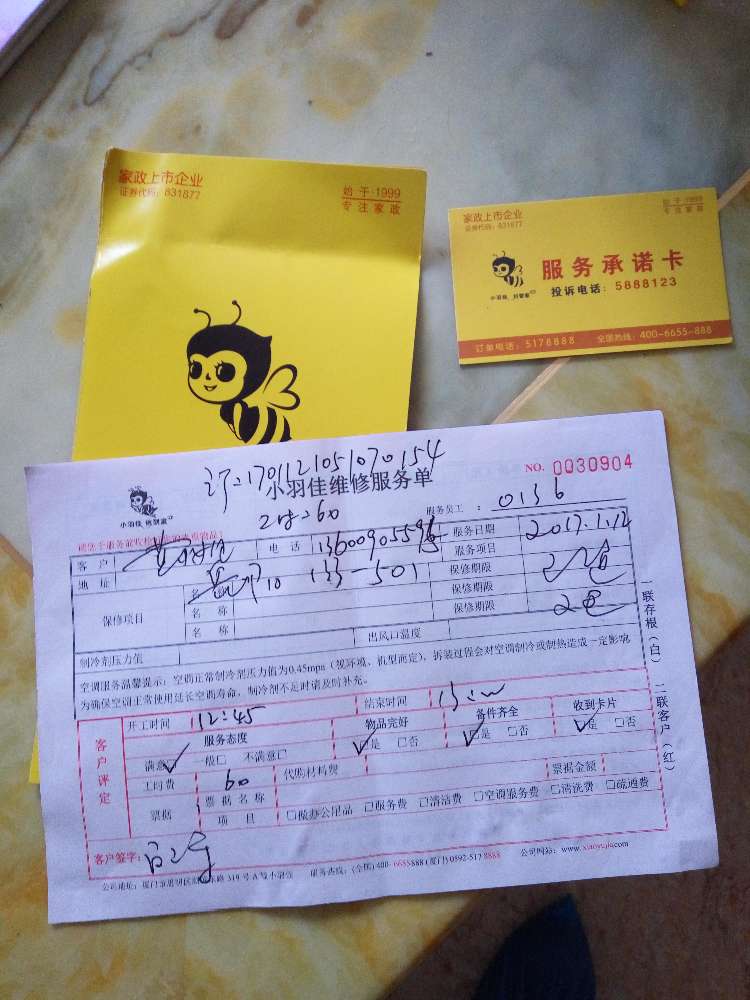 家政上市企业
证券代码：831877
始于·1999
专注家政
家政上市企业
证券代码：831877
始于·1999
专注家政
服务承诺卡
投诉电话：5888123
小羽佳
订单电话：5178888 全国热线：400-6655-888
1701121051070154
小羽佳维修服务单
NO. 0030904
小羽佳
服务员工：0136
客户 电话 13600905596 服务日期 2017.1.12
地址 133-501 服务项目
保修项目 名称 保修期限
名称 保修期限
名称 保修期限
制冷剂压力值 出风口温度
空调服务温馨提示：空调正常制冷剂压力值为0.45mpa（视环境、机型而定），拆装过程会对空调制冷或制热造成一定影响
为确保空调正常使用延长空调寿命，制冷剂不足时请及时补充。
一联存根（白） 二联客户（红）
客户评定
开工时间 12:45 结束时间
服务态度 物品完好 备件齐全 收到卡片
满意 一般□ 不满意□ 是 □否 是 □否 是 □否
工时费 60 代购材料费
票据 票据名称 票据金额
项目 □做办公用品 □服务费 □清洁费 □空调服务费 □清洗费 □疏通费
客户签字：
319号 服务热线：(全国)400-6655888 (厦门)0592-5178888 公司网站：www.xiaoyujia.com